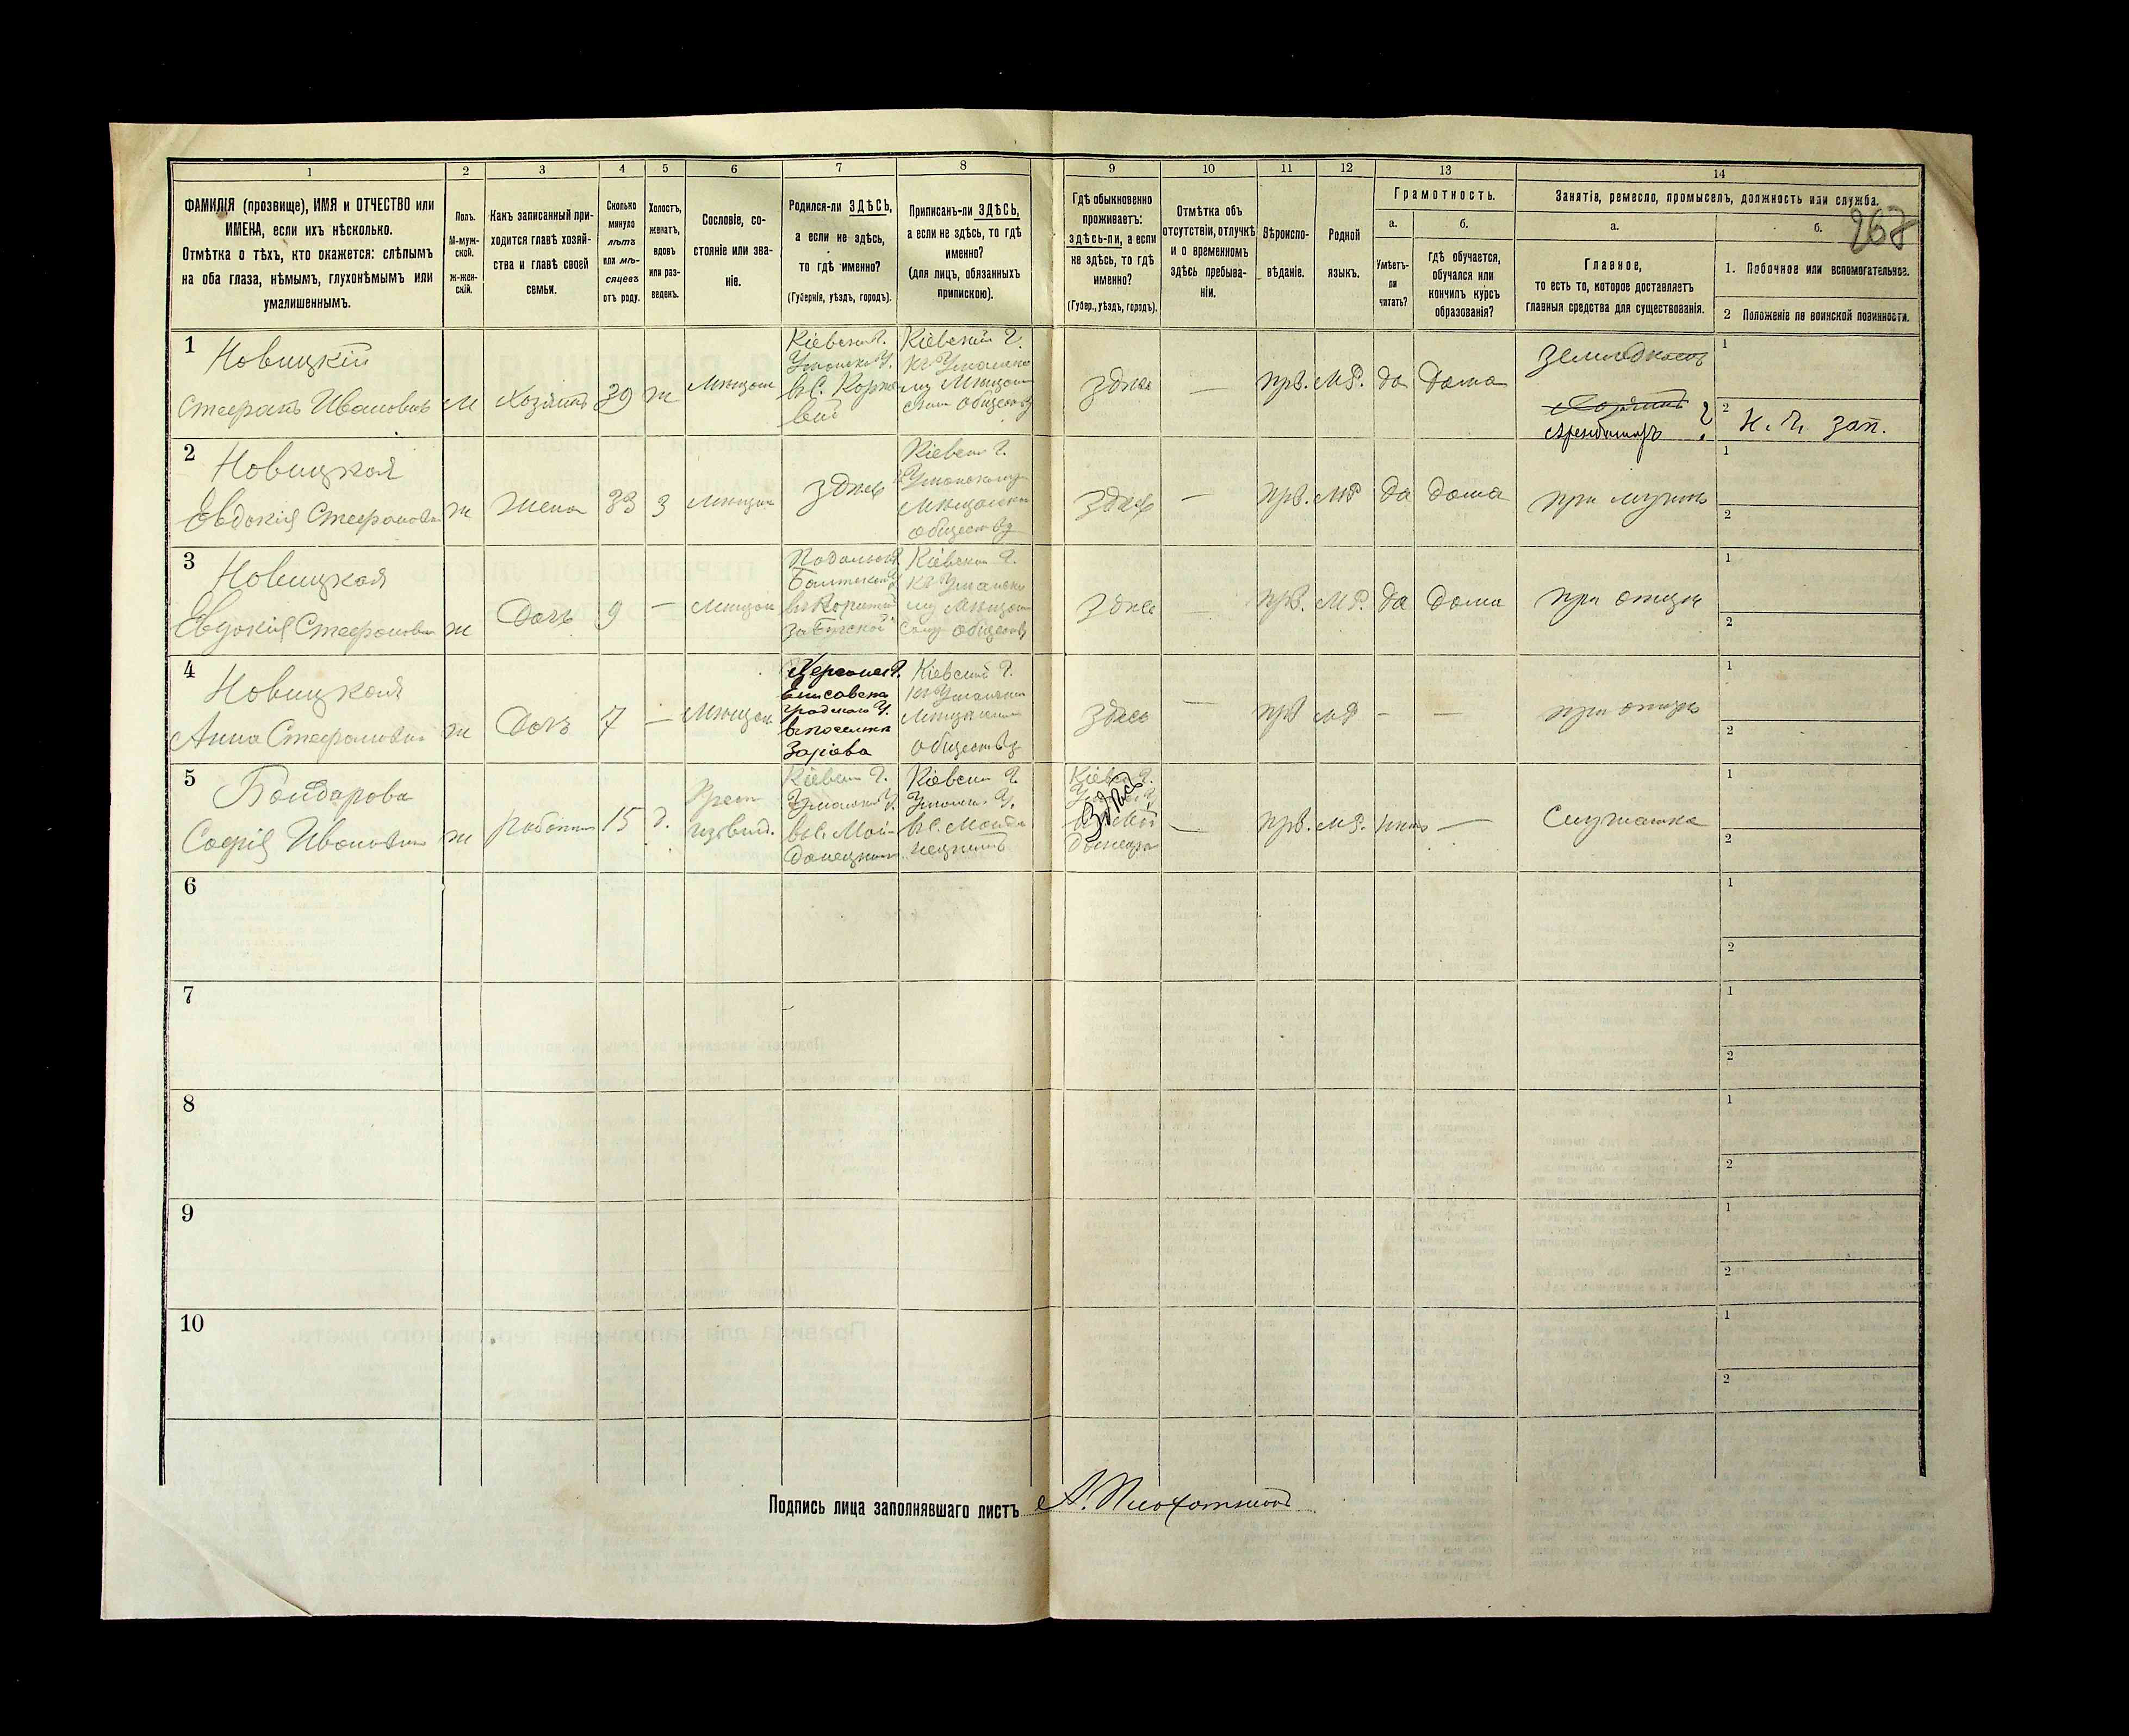 1
2
3
4
5
6
7
8
9
10
11
12
13
14
ФАМИЛІЯ (прозвище), ИМЯ и ОТЧЕСТВО или
ИМЕНА, если ихъ нѣсколько.
Отмѣтка о тѣхъ, кто окажется: слѣпымъ
на оба глаза, нѣмымъ, глухонѣмымъ или
умалишеннымъ.
Полъ.
М-муж-
ской.
ж-жен-
скій.
Какъ записанный при-
ходится главѣ хозяй-
ства и главѣ своей
семьи.
Сколько
минуло
лѣтъ
или мѣ-
сяцевъ
отъ роду.
Холостъ,
женатъ,
вдовъ
или раз-
веденъ.
Сословіе, со-
стояніе или зва-
ніе.
Родился-ли ЗДѢСЬ,
а если не здѣсь,
то гдѣ именно?
(Губернія, уѣздъ, городъ).
Приписанъ-ли ЗДѢСЬ,
а если не здѣсь, то гдѣ
именно?
(для лицъ, обязанныхъ
припискою).
Гдѣ обыкновенно
проживаетъ:
здѣсь-ли, а если
не здѣсь, то гдѣ
именно?
(Губер., уѣздъ, городъ).
Отмѣтка объ
отсутствіи, отлучкѣ
и о временномъ
здѣсь пребыва-
ніи.
Вѣроиспо-
вѣданіе.
Родной
языкъ.
Грамотность.
а.
Умѣетъ-
ли
читать?
б.
гдѣ обучается,
обучался или
кончилъ курсъ
образованія?
Занятія, ремесло, промыселъ, должность или служба.
а.
Главное,
то есть то, которое доставляетъ
главныя средства для существованія.
б.
267
1. Побочное или вспомогательное.
2 Положеніе по воинской повинности.
1
Новицкій
Стефанъ Ивановичъ
м
Хозяинъ
39
ж
Мѣщан
Кіевской Г.
Уманск У.
Кіевской Г.
къ Уманско
му Мѣщан
скому Обществу
здѣсь
—
прв.
МР.
да
дома
Хозяинъ
Арендаторъ
1
2 Н. Ч. зап.
2
Новицкая
Евдокія Стефановна
ж
Жена
33
З
Мѣщан
здѣсь
Кіевск Г.
Уманскому
Мѣщанско
обществу
здѣсь
—
прв.
МР
да
дома
при мужѣ
1
2
3
Новицкая
Евдокія Стефановна
ж
Дочь
9
—
Мѣщан
Подольск Г.
Балтской У.
Кіевской Г.
къ Уманско
му Мѣщан
скому обществу
здѣсь
—
прв.
МР.
да
дома
при отцѣ
1
2
4
Новицкая
Анна Стефановна
ж
Дочь
7
—
Мѣщан
Херсонск Г.
Елисавета
градского У.
Кіевской Г.
къ Уманском
обществу
здѣсь
—
прв
МР
—
—
при отцѣ
1
2
5
Бондарова
Софія Ивановна
ж
работни
15
д.
Крест
Кіевск Г.
Уманской У.
въ с. Мой
Кіевск Г.
Уманск. У.
въ с. Мой
здѣсь
—
прв.
МР.
нѣтъ
—
Служанка
1
2
6
1
2
7
1
2
8
1
2
9
1
2
10
1
2
Подпись лица заполнявшаго листъ